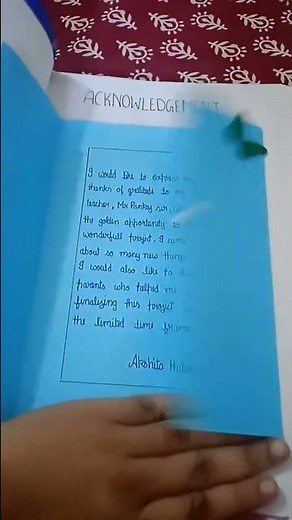 ACKNOWLEDGEMENT
I would like to express
thanks of gratitude to
teacher, Mr Pankaj sir,
the golden opportunity
wonderfull project. I came
about so many new things
I would also like to
parents who helped me
finalizing this project
the limited time frame
Akshita